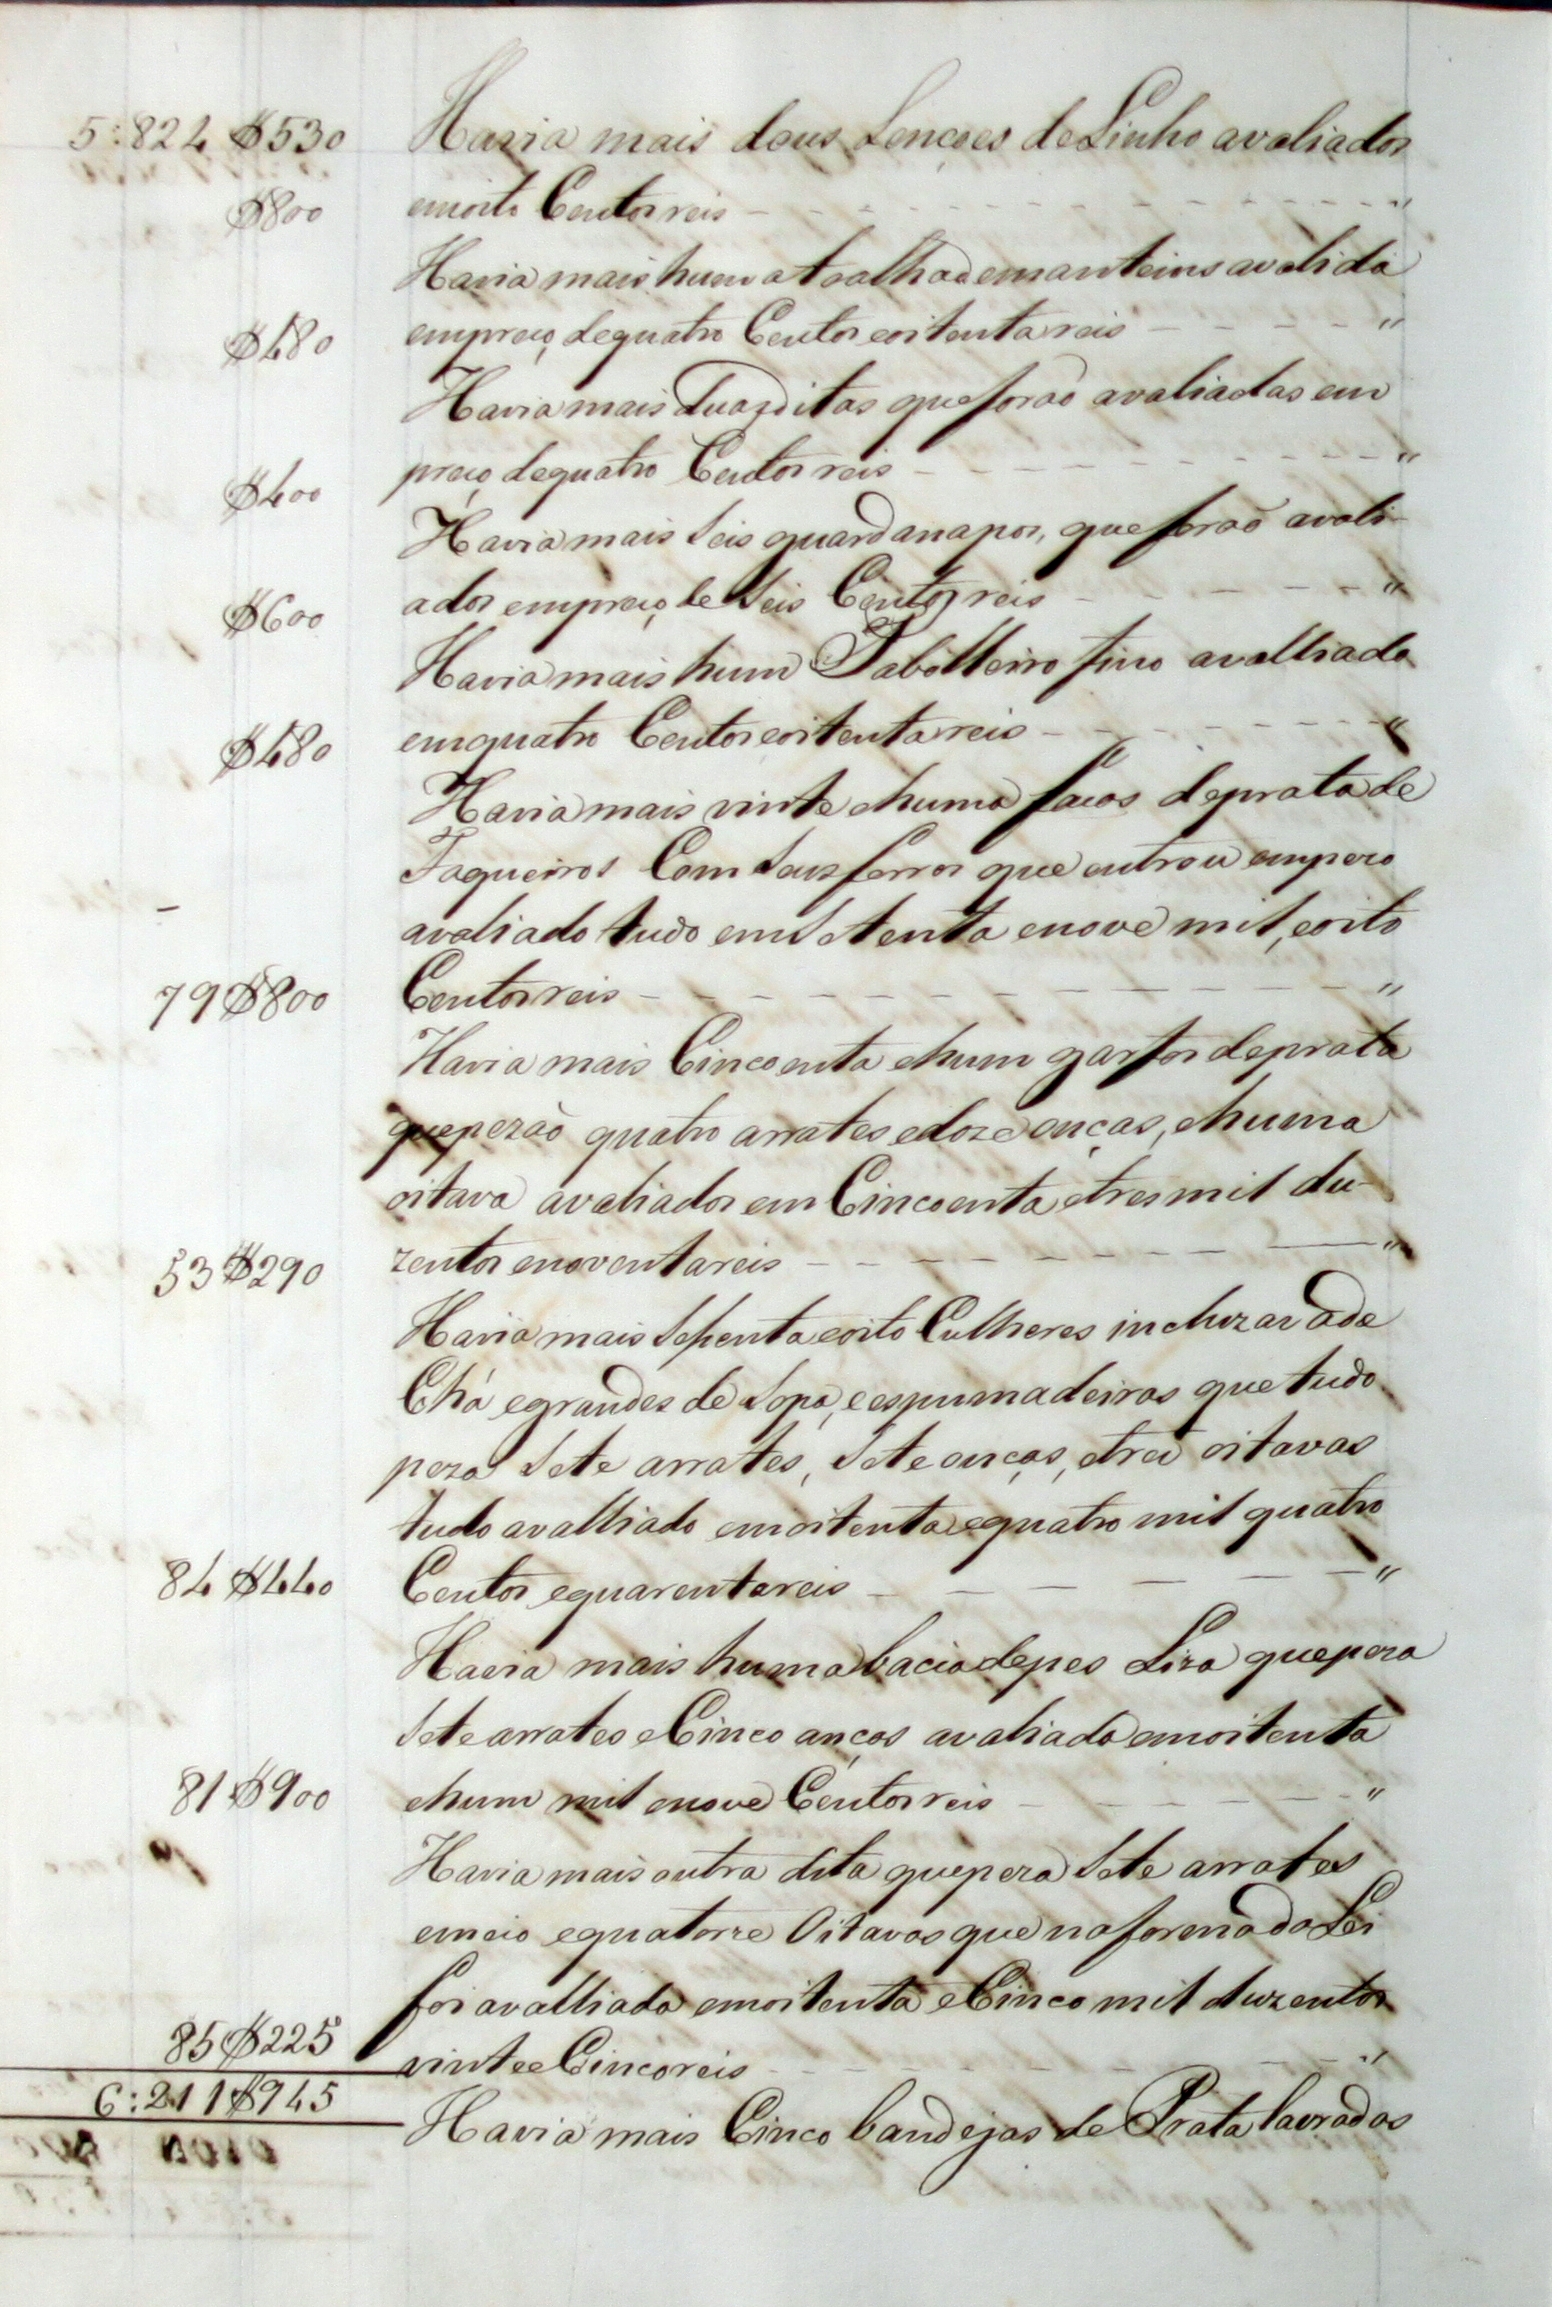 5:824$530 Havia mais dous Lençoes de Linho avaliados
$800 emoito Centos reis - - - - - - - - - - - - - "
Havia mais huma toalha de manteins avalida
$480 empreço de quatro Centos eoitenta reis - - - - - "
Havia mais duas ditas que forão avaliadas em
$400 preço de quatro Centos reis - - - - - - - - - - "
Havia mais Seis guardanapos, que forão avali-
$600 ados empreço de Seis Centos reis - - - - - - "
Havia mais hum Tabolleiro fino avalliado
$480 emquatro Centos eoitenta reis - - - - - - - "
Havia mais vinte ehuma facas deprata de
Faqueiros Com Seus ferros que entrou empezo
avaliado tudo emSetenta enove mil, eoito
79$800 Centos reis - - - - - - - - - - - - - "
Havia mais Cincoenta ehum garfos deprata
quepezão quatro arrates edoze onças, ehuma
oitava avaliados em Cincoenta etres mil du-
53$290 zentos enoventa reis - - - - - - - - "
Havia mais Setenta eoito Culheres incluzas as de
Chá egrandes de Sopa, eespumadeiras que tudo
peza Sete arrates, Sete onças, etres oitavas
tudo avalliado emoitenta equatro mil quatro
84$440 Centos equarenta reis - - - - - - "
Havia mais huma bacia depes Liza quepeza
Sete arrates eCinco onças avaliada emoitenta
81$900 ehum mil enove Centos reis - - - - - - "
Havia mais outra dita quepeza Sete arrates
emeio equatorze Oitavas que na forma da Lei
foi avalliada emoitenta eCinco mil duzentos
85$225 vinte eCinco reis - - - - - - - - "
6:211$945
Havia mais Cinco bandejas de Prata lavradas